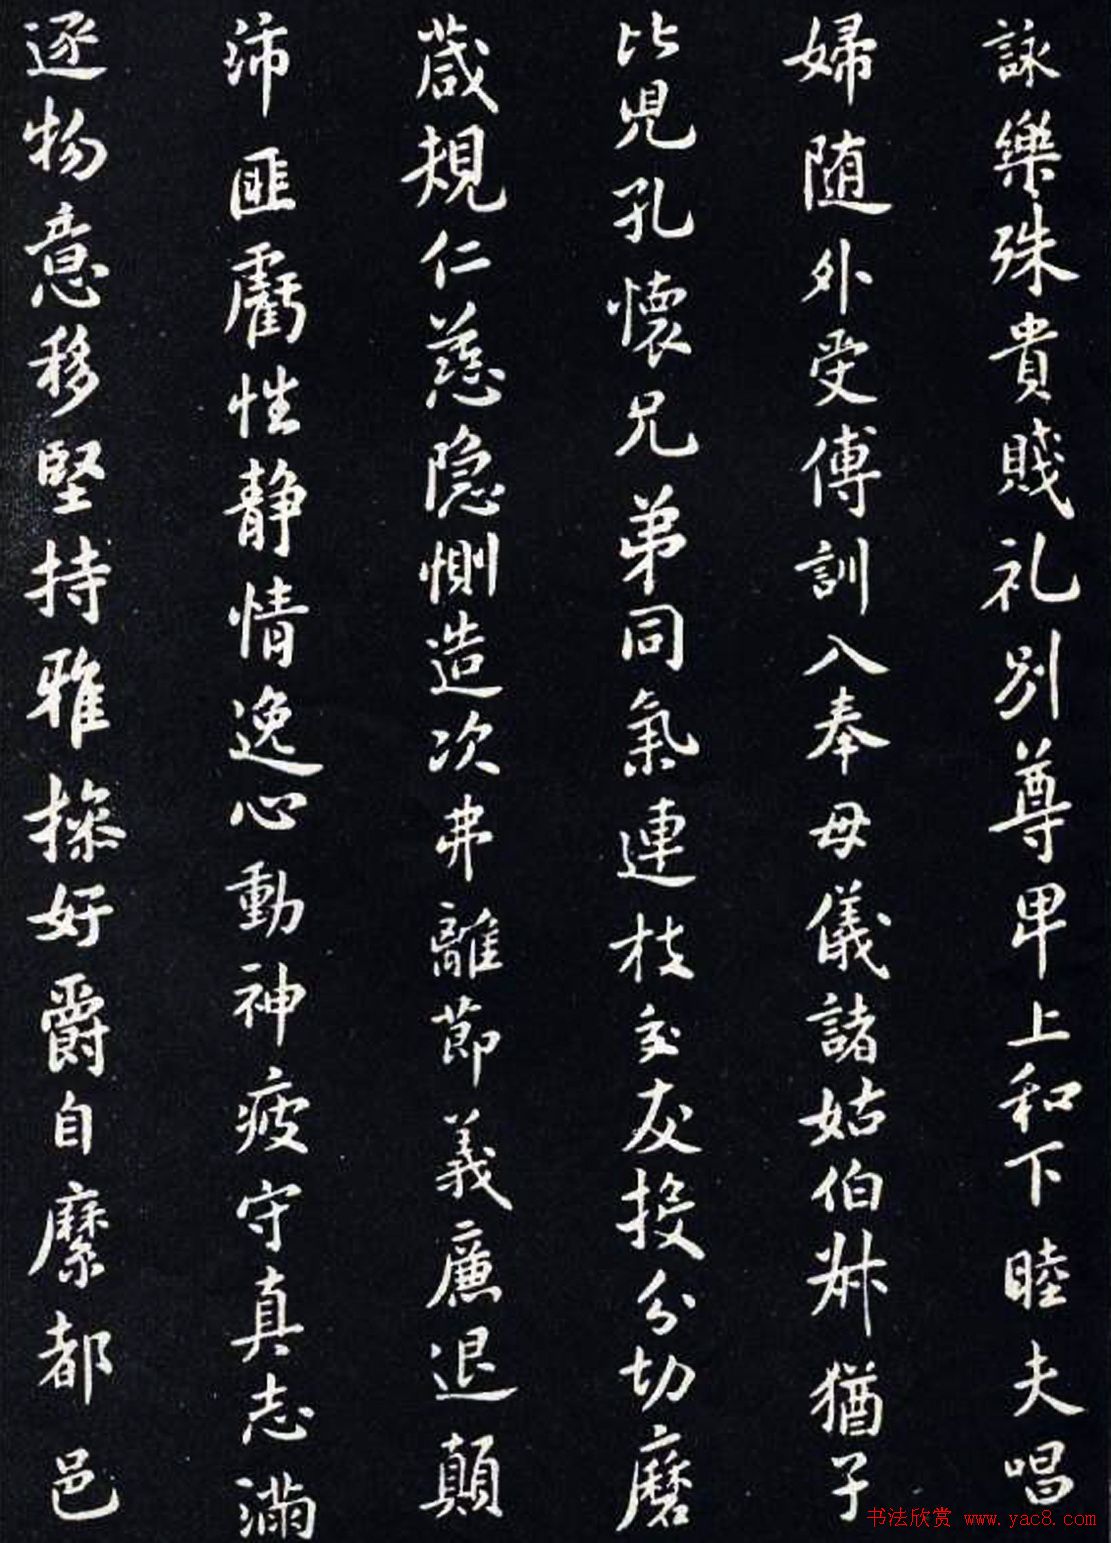 詠樂殊貴賤礼別尊卑上和下睦夫唱
婦随外受傅訓入奉母儀諸姑伯叔猶子
比兒孔懷兄弟同氣連枝交友投分切磨
葴規仁慈隐惻造次弗離節義廉退顛
沛匪虧性静情逸心動神疲守真志滿
逐物意移堅持雅操好爵自縻都邑
书法欣赏 www.yac8.com